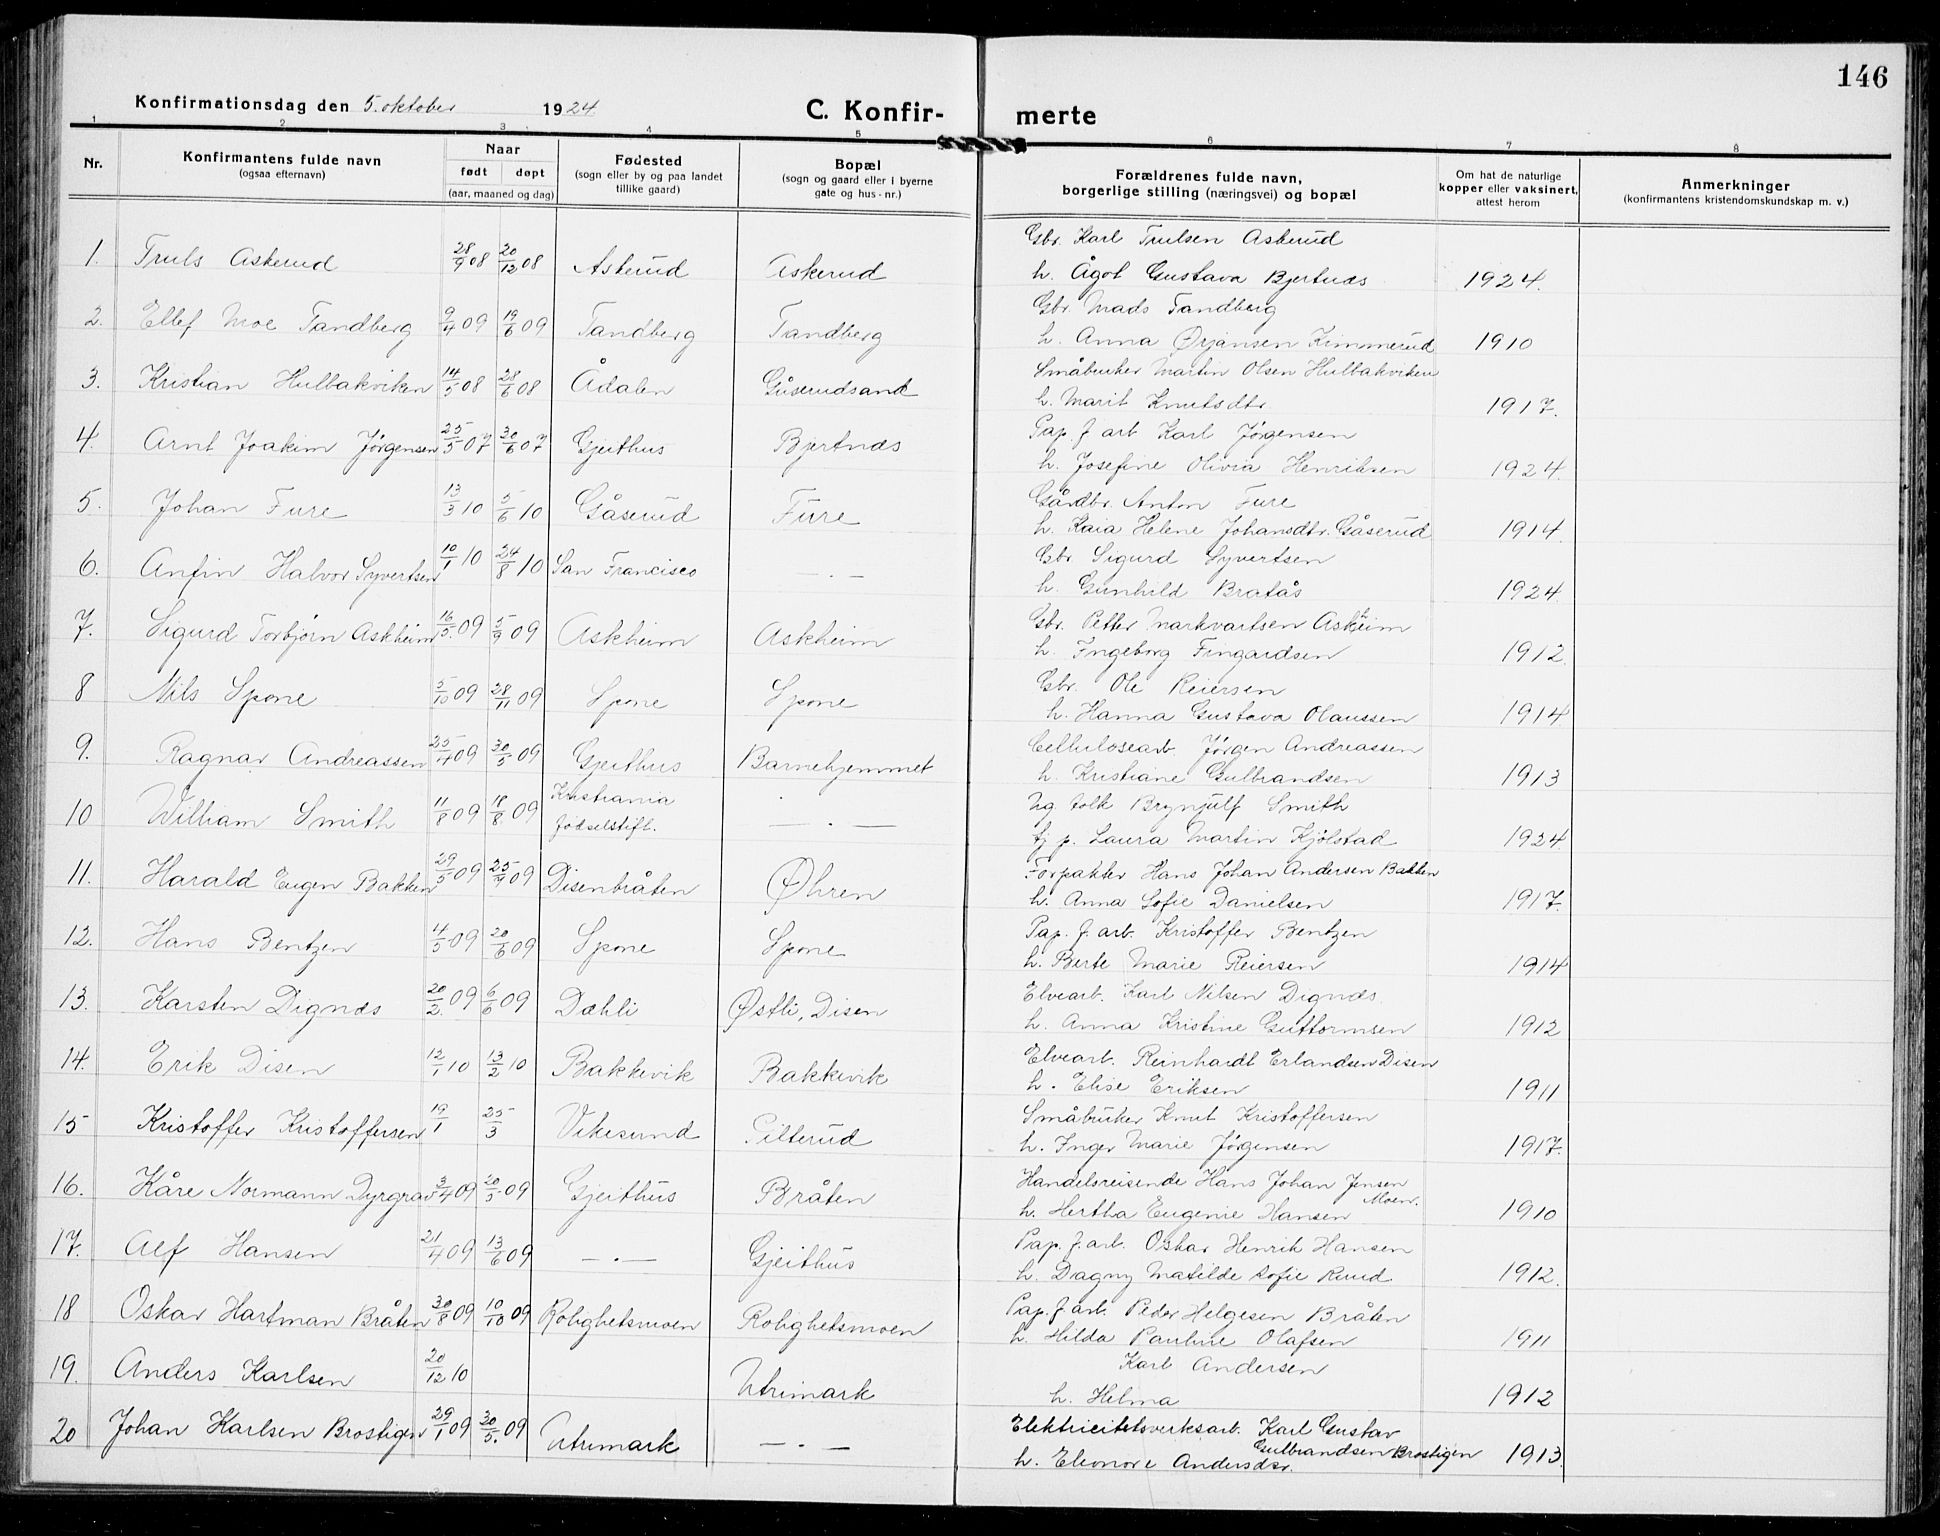 146
Konfirmationsdag den 5. oktober 1924
C. Konfirmerte
1 2 3 4 5 6 7 8
Nr. | Konfirmantens fulde navn (ogsaa efternavn) | Naar født døpt (aar, maaned og dag) | Fødested (sogn eller by og paa landet tillike gaard) | Bopæl (sogn og gaard eller i byerne gate og hus-nr.) | Forældrenes fulde navn, borgerlige stilling (næringsvei) og bopæl | Om hat de naturlige kopper eller vaksinert, attest herom | Anmerkninger (konfirmantens kristendomskundskap m. v.)
1. Truls Askerud 28/9 08 20/12 08 Askerud Askerud Gbr. Karl Trulsen Askerud
h. Ågot Gustava Bjertnæs 1924.
2. Ellef Moe Tandberg 9/4 09 19/6 09 Tandberg Tandberg Gbr. Mads Tandberg
h. Anna Ørjansen Kimmerud 1910
3. Kristian Hulbakviken 14/5 08 28/6 08 Ådalen Gåserudsand Småbruker Martin Olsen Hulbakviken
h. Marit Knutsdtr 1917.
4. Arnt Joakim Jørgensen 25/5 07 30/6 07 Gjeithus Bjertnæs Pap. f. arb Karl Jørgensen
h. Josefine Olivia Henriksen 1924.
5. Johan Fure 13/3 10 5/6 10 Gåserud Fure Gårdbr. Anton Fure
h. Kaia Helene Johansdtr. Gåserud 1914.
6. Anfin Halvor Syvertsen 10/1 10 24/8 10 San Francisco — . — Gbr. Sigurd Syvertsen
h. Gunhild Bratås 1924.
7. Sigurd Torbjørn Askheim 16/5. 09 5/9 09 Askheim Askheim Gbr. Petter Markvartsen Askheim
h. Ingeborg Fingardsen 1912.
8 Nils Spone 5/10 09 28/11 09 Spone Spone Gbr. Ole Reiersen
h. Hanna Gustava Olaussen 1914
9. Ragnar Andreassen 25/4 09 30/5 09 Gjeithus Barnehjemmet Cellulosearb. Jørgen Andreassen
h. Kristiane Gulbrandsen 1913
10 William Smith 11/8 09 18/8. 09 Kristiania Fødselstift. — . — Ug. tolk Brynjulf Smith
tj p. Laura Martin Kjölstad 1924
11. Harald Eugen Bakken 29/5 09 25/4 09 Disenbråten Øhren Forpakter Hans Johan Andersen Bakken
h. Anna Sofie Danielsen 1917.
12. Hans Bentzen 4/5 09 20/6 09 Spone Spone Pap. f. arb. Kristoffer Bentzen
h. Berte Marie Reiersen 1914
13. Karsten Dignæs 20/2. 09 6/6 09 Dæhli Østli, Disen Elvearb. Karl Nilsen Dignæs.
h. Anna Kristine Guttormsen 1912
14. Erik Disen 12/1 10 13/2 10 Bakkevik Bakkevik Elvearb. Reinhardt Erlandsen Disen
h. Elise Eriksen 1911
15 Kristoffer Kristoffersen 19/1 25/3 Vikesund Pilterud Småbruker Knut Kristoffersen
h. Inger Marie Jørgensen 1917.
16. Kåre Normann Dyrgrav 3/4 09 20/5 09 Gjeithus Bråten Handelsreisende Hans Johan Jensen Moen.
h. Hertha Eugenie Hansen 1910
17. Alf Hansen 21/4 09 13/6 09 — . — Gjeithus Pap. f. arb. Oskar Henrik Hansen
h. Dagny Matilde Sofie Ruud 1912.
18 Oskar Hartman Bråten 30/8 09 10/10 09 Rolighetsmoen Rolighetsmoen Pap. f. arb. Peder Helgesen Bråten
h. Hilda Pauline Olafsen 1911
19. Anders Karlsen 20/12 10 Utrimark Karl Andersen
h. Helma 1912
20 Johan Karlsen Brostigen 29/1 09 30/5. 09 Utrimark — . — Elektricitetsverksarb. Karl Gustav Gulbrandsen Brostigen
h. Eleonore Andersdtr. 1913.